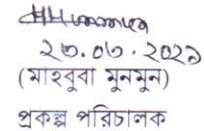 ২০.০৬.২০২১
(মাহবুবা মুনমুন)
প্রকল্প পরিচালক